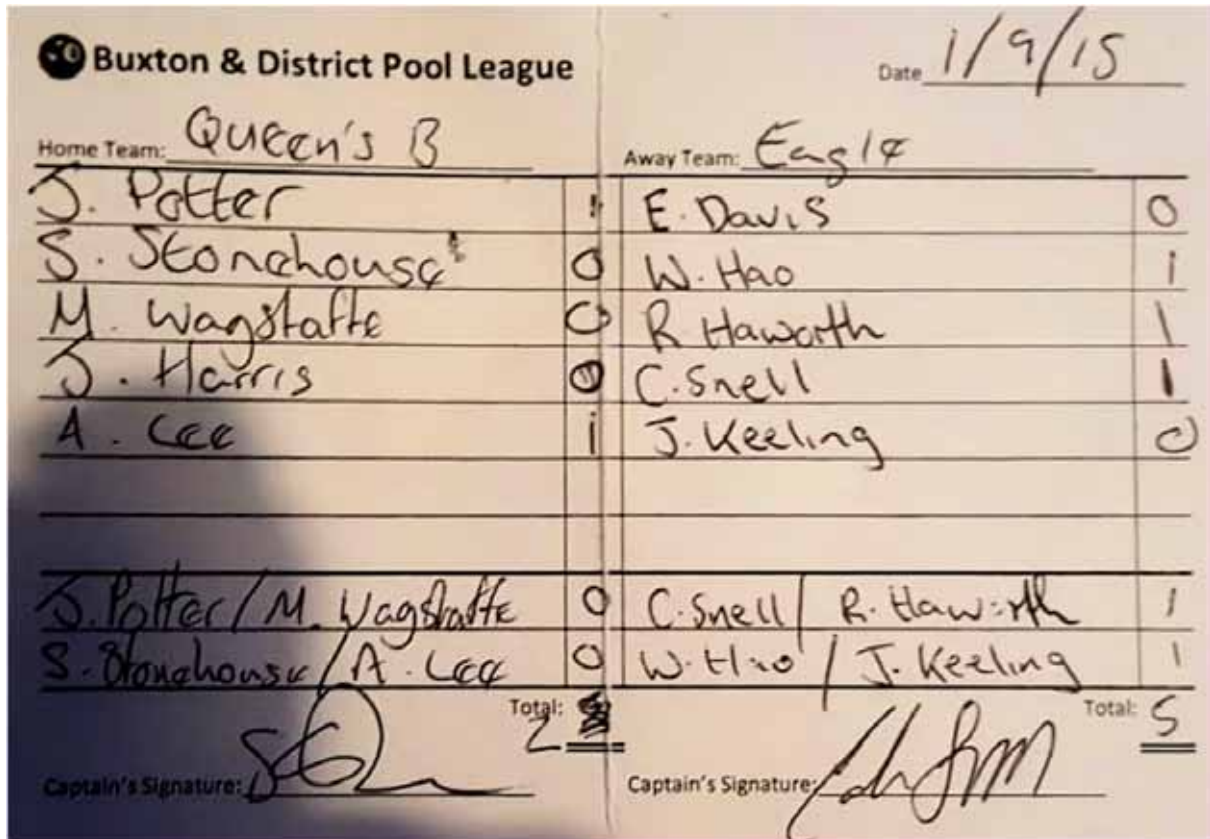 Buxton & District Pool League
Date 1/9/15
Home Team: Queen's B Away Team: Eagle
J. Potter 1 E. Davis 0
S. Stonehouse 0 W. Hao 1
M. Wagstaffe 0 R Haworth 1
J. Harris 0 C. Snell 1
A. Lee 1 J. Keeling 0
J. Potter / M. Wagstaffe 0 C. Snell / R. Haworth 1
S. Stonehouse / A. Lee 0 W. Hao / J. Keeling 1
Total: 2 Total: 5
Captain's Signature: Captain's Signature: